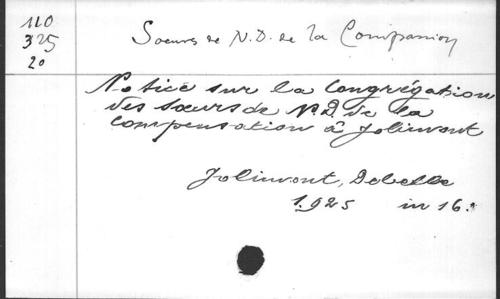 110
325
20
Soeurs de N.D. de la Compassion
Notice sur la Congrégation
des soeurs de N.D. de la
compensation à Jolimont
Jolimont, Debelle
1.925 in 16.